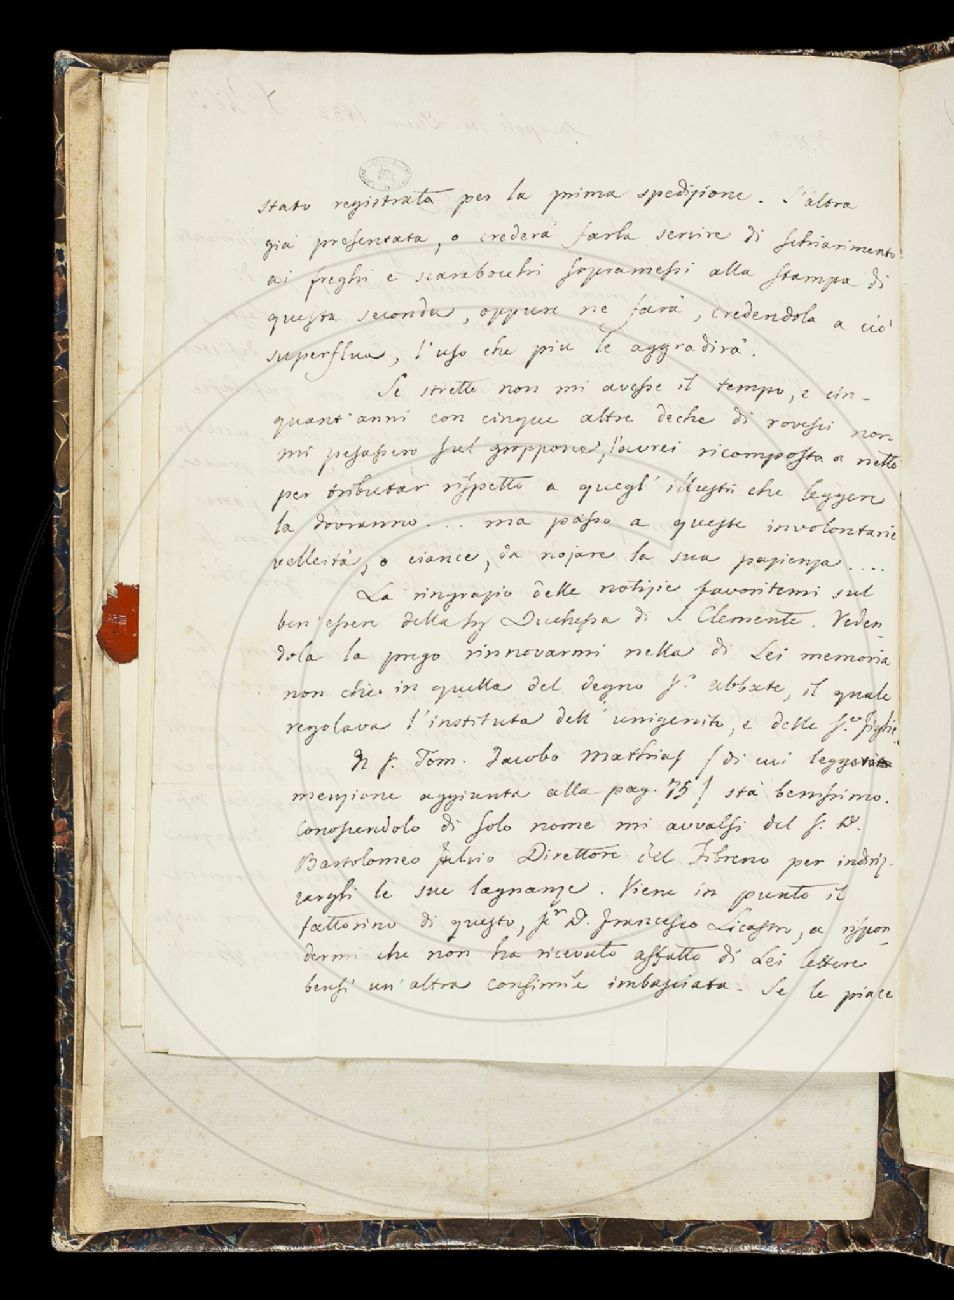 stato registrata per la prima spedizione. L'altra
già presentata, o crederà farla servire di schiarimento
ai freghi e scarabocchi sopramessi alla stampa di
questa seconda, oppure ne farà, credendola a ciò
superflua, l'uso che piu le aggradirà.
Se stretto non mi avesse il tempo, e cin-
quant'anni con cinque altre deche di rovesci non
mi pesassero sul groppone, l'avrei ricomposta a netto
per tributar rispetto a quegl'illustri che leggere
la dovranno.... ma passo a queste involontarie
velleità, o ciance, da nojare la sua pazienza....
La ringrazio delle notizie favoritemi sul
ben'essere della Duchessa di S. Clemente. Veden-
dola la prego rinnovarmi nella di Lei memoria
non chè in quella del degno Sr. abbate, il quale
regolava l'instituta dell'unigenito, e delle figlie.
Il S. Tom. Jacobo Mathias (di cui leggerà
menzione aggiunta alla pag. 75) stà benissimo.
Conoscendolo di solo nome mi avvalsi del S. D.
Bartolomeo Fulvio Direttore del Fibreno per indiriz-
zargli le sue lagnanze. Viene in punto il
fattorino di questo, Sr. D. Francesco Licastro, a rispon-
dermi che non ha ricevuto affatto di Lei lettere
bensì un'altra consimile imbasciata. Se le piace